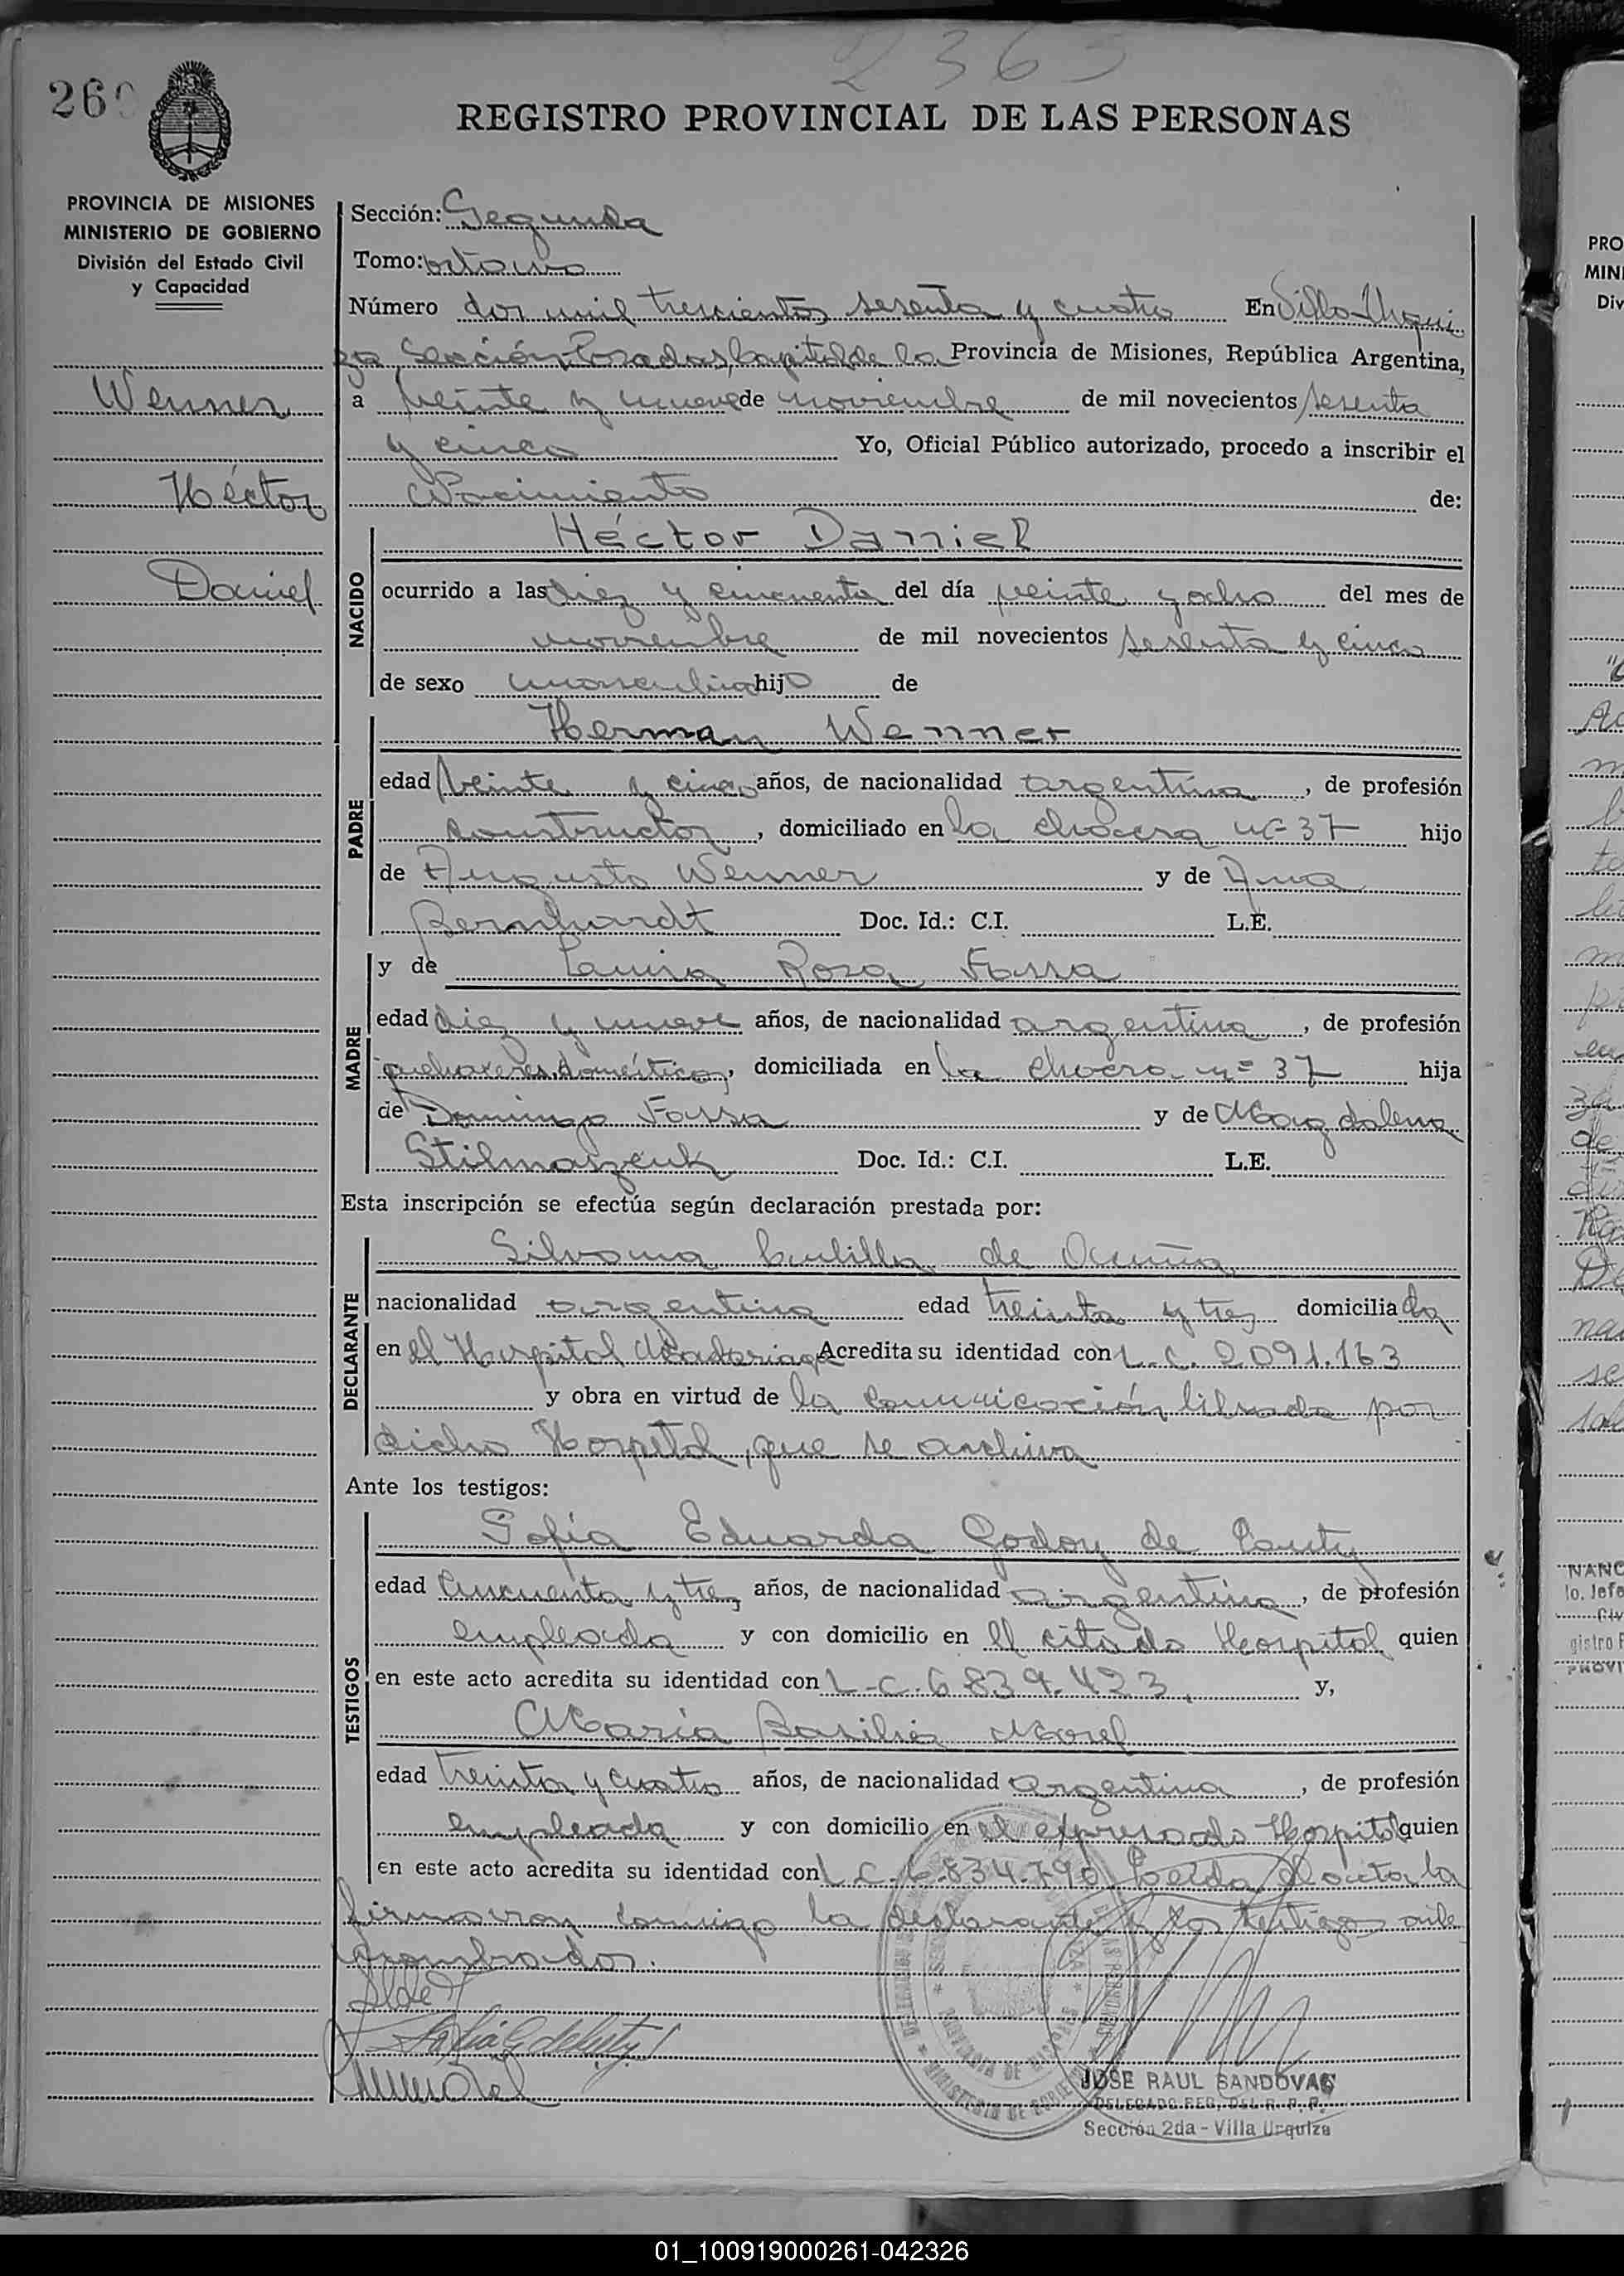 2363
REGISTRO PROVINCIAL DE LAS PERSONAS
PROVINCIA DE MISIONES
MINISTERIO DE GOBIERNO
División del Estado Civil
y Capacidad
Wenner
Héctor
Daniel
Sección: Segunda
Tomo: octavo
Número dos mil trescientos sesenta y cuatro En Villa Urqui
za Sección Posadas, Capital de la Provincia de Misiones, República Argentina,
a veinte y nueve de noviembre de mil novecientos sesenta
y cinco Yo, Oficial Público autorizado, procedo a inscribir el
Nacimiento de:
NACIDO
Héctor Daniel
ocurrido a las diez y cincuenta del día veinte y ocho del mes de
noviembre de mil novecientos sesenta y cinco
de sexo masculino hijo de
PADRE
Herman Wenner
edad veinte y cinco años, de nacionalidad argentina, de profesión
constructor, domiciliado en la chacra nº 37 hijo
de Augusto Wenner y de Ana
Bernhardt Doc. Id.: C.I. L.E.
MADRE
y de Rosa Fassa
edad diez y nueve años, de nacionalidad argentina, de profesión
quehaceres domésticos, domiciliada en la chacra nº 37 hija
de Domingo Fassa y de Magdalena
Doc. Id.: C.I. L.E.
Esta inscripción se efectúa según declaración prestada por:
DECLARANTE
Silvana de Acuña
nacionalidad argentina edad treinta y tres domiciliada
en el Hospital Madariaga Acredita su identidad con L.C. 2.091.163
y obra en virtud de la comunicación librada por
dicho Hospital, que se archiva
Ante los testigos:
TESTIGOS
Sofía Eduarda Godoy de
edad cincuenta y tres años, de nacionalidad argentina, de profesión
empleada y con domicilio en el citado Hospital quien
en este acto acredita su identidad con L.C. 6.839.423, y,
María Basilia Morel
edad treinta y cuatro años, de nacionalidad argentina, de profesión
empleada y con domicilio en el expresado Hospital quien
en este acto acredita su identidad con L.C. 6.834.790 Leída el acta la
firmaron conmigo la declarante y los testigos
nombrados.
JOSE RAUL SANDOVAL
DELEGADO REG. DEL R. P. P.
Sección 2da - Villa Urquiza
01_100919000261-042326